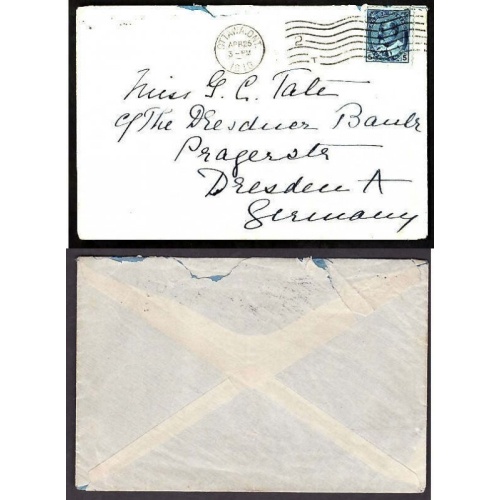 OTTAWA, ONT.
APR 25
3 - PM
2
T
Miss G. C. Tate
c/o The Dresdner Bank
Pragerstr
Dresden A
Germany